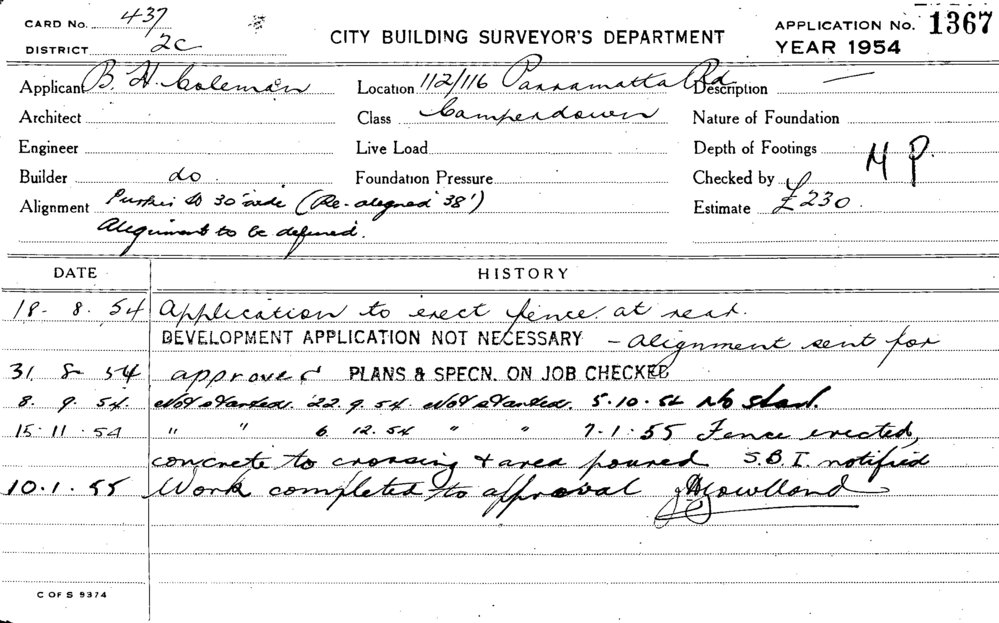 CARD No. 437
DISTRICT 2C
CITY BUILDING SURVEYOR'S DEPARTMENT
APPLICATION No. 1367
YEAR 1954
Applicant B. H. Coleman
Location 112/116 Parramatta Rd
Description —
Architect
Class Camperdown
Nature of Foundation
Engineer
Live Load
Depth of Footings
Builder do
Foundation Pressure
Checked by M P.
Alignment 30' wide (Re-aligned 38')
Estimate £230.
Alignment to be defined.
DATE HISTORY
18. 8. 54 Application to erect fence at rear.
DEVELOPMENT APPLICATION NOT NECESSARY - alignment sent for
31 8 54 approved PLANS & SPECN. ON JOB CHECKED
8. 9. 54. Not started. 22. 9. 54. Not started. 5.10.54 No start.
15. 11. 54 " " 6. 12. 54 " " 7.1.55 Fence erected,
concrete to crossing & area poured S.B.I. notified
10.1.55 Work completed to approval
C OF S 9374